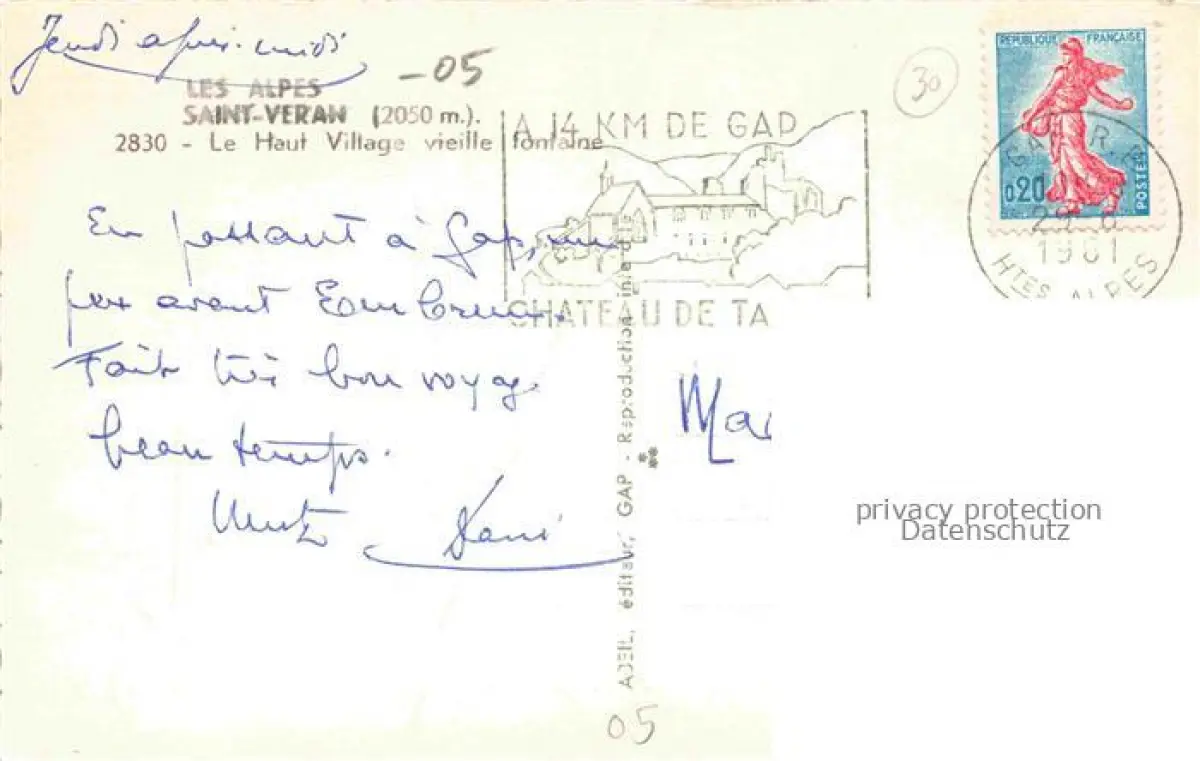 Jeudi après-midi
-05
LES ALPES
SAINT-VERAN (2050 m.).
2830 - Le Haut Village vieille fontaine
30
REPUBLIQUE FRANÇAISE
0,20
POSTES
A 14 KM DE GAP
CHATEAU DE TA
GAP R.P.
29 - 6
1961
HTES ALPES
En passant à Gap, un
peu avant Embrun.
Fait très bon voyage
beau temps.
Dani
Mar
ABEIL, éditeur, GAP - Reproduction interdite
05
privacy protection
Datenschutz